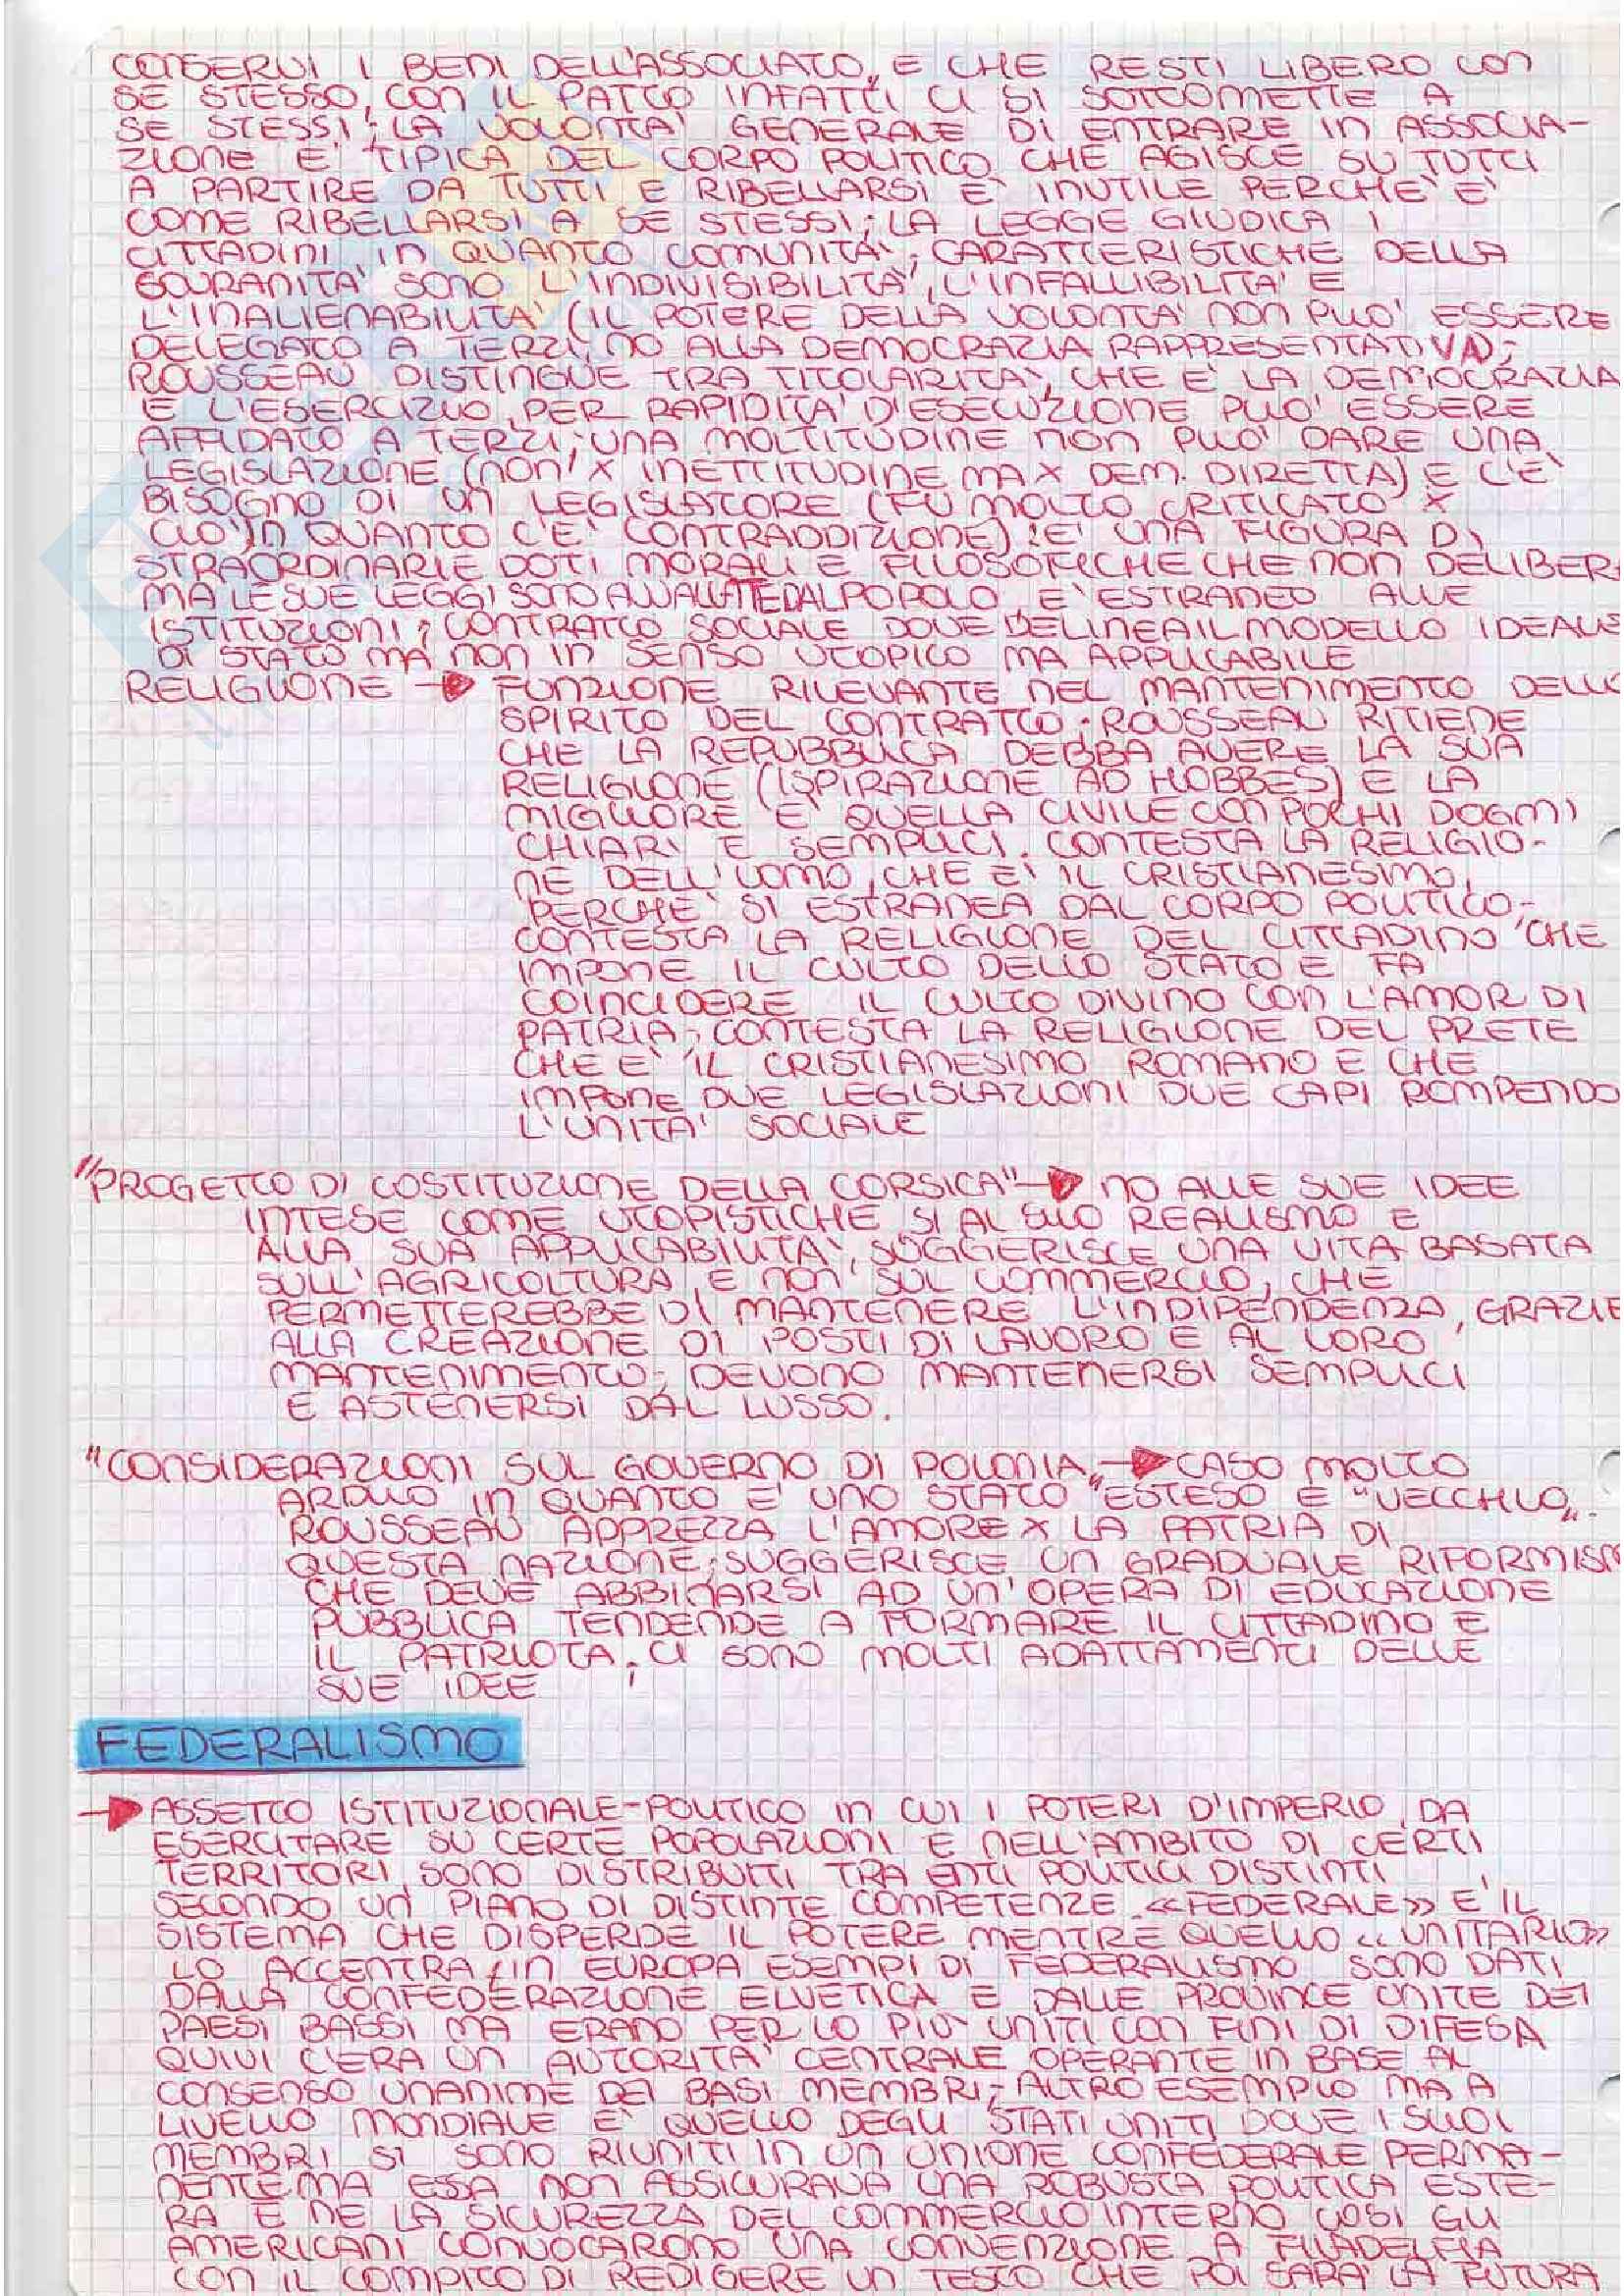 CONSERVI I BENI DELL'ASSOCIATO„ E CHE RESTI LIBERO CON
SE STESSO, CON IL PATTO INFATTI CI SI SOTTOMETTE A
SE STESSI; LA VOLONTA' GENERALE DI ENTRARE IN ASSOCIA-
ZIONE E' TIPICA DEL CORPO POLITICO CHE AGISCE SU TUTTI
A PARTIRE DA TUTTI E RIBELLARSI E' INUTILE PERCHE' E'
COME RIBELLARSI A SE STESSI; LA LEGGE GIUDICA I
CITTADINI IN QUANTO COMUNITA'; CARATTERISTICHE DELLA
SOVRANITA' SONO L'INDIVISIBILITA', L'INFALLIBILITA' E
L'INALIENABILITA' (IL POTERE DELLA VOLONTA' NON PUO' ESSERE
DELEGATO A TERZI, NO ALLA DEMOCRAZIA RAPPRESENTATIVA);
ROUSSEAU DISTINGUE TRA TITOLARITA', CHE E' LA DEMOCRAZIA
E L'ESERCIZIO, PER RAPIDITA' D'ESECUZIONE PUO' ESSERE
AFFIDATO A TERZI; UNA MOLTITUDINE NON PUO' DARE UNA
LEGISLAZIONE (NON X INETTITUDINE MA X DEM. DIRETTA) E C'E'
BISOGNO DI UN LEGISLATORE (FU MOLTO CRITICATO X
CIO' IN QUANTO C'E' CONTRADDIZIONE): E' UNA FIGURA DI
STRAORDINARIE DOTI MORALI E FILOSOFICHE CHE NON DELIBER
MA LE SUE LEGGI SONO AVVALLATTE DAL POPOLO, E' ESTRANEO ALLE
ISTITUZIONI; CONTRATTO SOCIALE DOVE DELINEA IL MODELLO IDEALE
DI STATO MA NON IN SENSO UTOPICO MA APPLICABILE
RELIGIONE → FUNZIONE RILEVANTE NEL MANTENIMENTO DELLO
SPIRITO DEL CONTRATTO. ROUSSEAU RITIENE
CHE LA REPUBBLICA DEBBA AVERE LA SUA
RELIGIONE (ISPIRAZIONE AD HOBBES) E LA
MIGLIORE E' QUELLA CIVILE CON POCHI DOGMI
CHIARI E SEMPLICI. CONTESTA LA RELIGIO-
NE DELL'UOMO, CHE E' IL CRISTIANESIMO,
PERCHE' SI ESTRANEA DAL CORPO POLITICO;
CONTESTA LA RELIGIONE DEL CITTADINO CHE
IMPONE IL CULTO DELLO STATO E FA
COINCIDERE IL CULTO DIVINO CON L'AMOR DI
PATRIA; CONTESTA LA RELIGIONE DEL PRETE
CHE E' IL CRISTIANESIMO ROMANO E CHE
IMPONE DUE LEGISLAZIONI DUE CAPI ROMPENDO
L'UNITA' SOCIALE
"PROGETTO DI COSTITUZIONE DELLA CORSICA" → NO ALLE SUE IDEE
INTESE COME UTOPISTICHE SI AL SUO REALISMO E
ALLA SUA APPLICABILITA', SUGGERISCE UNA VITA BASATA
SULL'AGRICOLTURA E NON SUL COMMERCIO, CHE
PERMETTEREBBE DI MANTENERE L'INDIPENDENZA, GRAZIE
ALLA CREAZIONE DI POSTI DI LAVORO E AL LORO
MANTENIMENTO; DEVONO MANTENERSI SEMPLICI
E ASTENERSI DAL LUSSO.
"CONSIDERAZIONI SUL GOVERNO DI POLONIA„ → CASO MOLTO
ARDUO IN QUANTO E' UNO STATO "ESTESO E "VECCHIO„.
ROUSSEAU APPREZZA L'AMORE X LA PATRIA DI
QUESTA NAZIONE; SUGGERISCE UN GRADUALE RIFORMISM
CHE DEVE ABBINARSI AD UN'OPERA DI EDUCAZIONE
PUBBLICA TENDENDE A FORMARE IL CITTADINO E
IL PATRIOTA; CI SONO MOLTI ADATTAMENTI DELLE
SUE IDEE
FEDERALISMO
→ ASSETTO ISTITUZIONALE-POLITICO IN CUI I POTERI D'IMPERIO, DA
ESERCITARE SU CERTE POPOLAZIONI E NELL'AMBITO DI CERTI
TERRITORI, SONO DISTRIBUITI TRA ENTI POLITICI DISTINTI
SECONDO UN PIANO DI DISTINTE COMPETENZE. «FEDERALE» E' IL
SISTEMA CHE DISPERDE IL POTERE MENTRE QUELLO «UNITARIO»
LO ACCENTRA; IN EUROPA ESEMPI DI FEDERALISMO SONO DATI
DALLA CONFEDERAZIONE ELVETICA E DALLE PROVINCE UNITE DEI
PAESI BASSI MA ERANO PER LO PIU' UNITI CON FINI DI DIFESA
QUIVI C'ERA UN AUTORITA' CENTRALE OPERANTE IN BASE AL
CONSENSO UNANIME DEI BASI MEMBRI; ALTRO ESEMPIO MA A
LIVELLO MONDIALE E' QUELLO DEGLI STATI UNITI DOVE I SUOI
MEMBRI SI SONO RIUNITI IN UN UNIONE CONFEDERALE PERMA-
NENTE MA ESSA NON ASSICURAVA UNA ROBUSTA POLITICA ESTE-
RA E NE LA SICUREZZA DEL COMMERCIO INTERNO COSI GLI
AMERICANI CONVOCARONO UNA CONVENZIONE A FILADELFIA
CON IL COMPITO DI REDIGERE UN TESTO CHE POI SARA' LA FUTURA